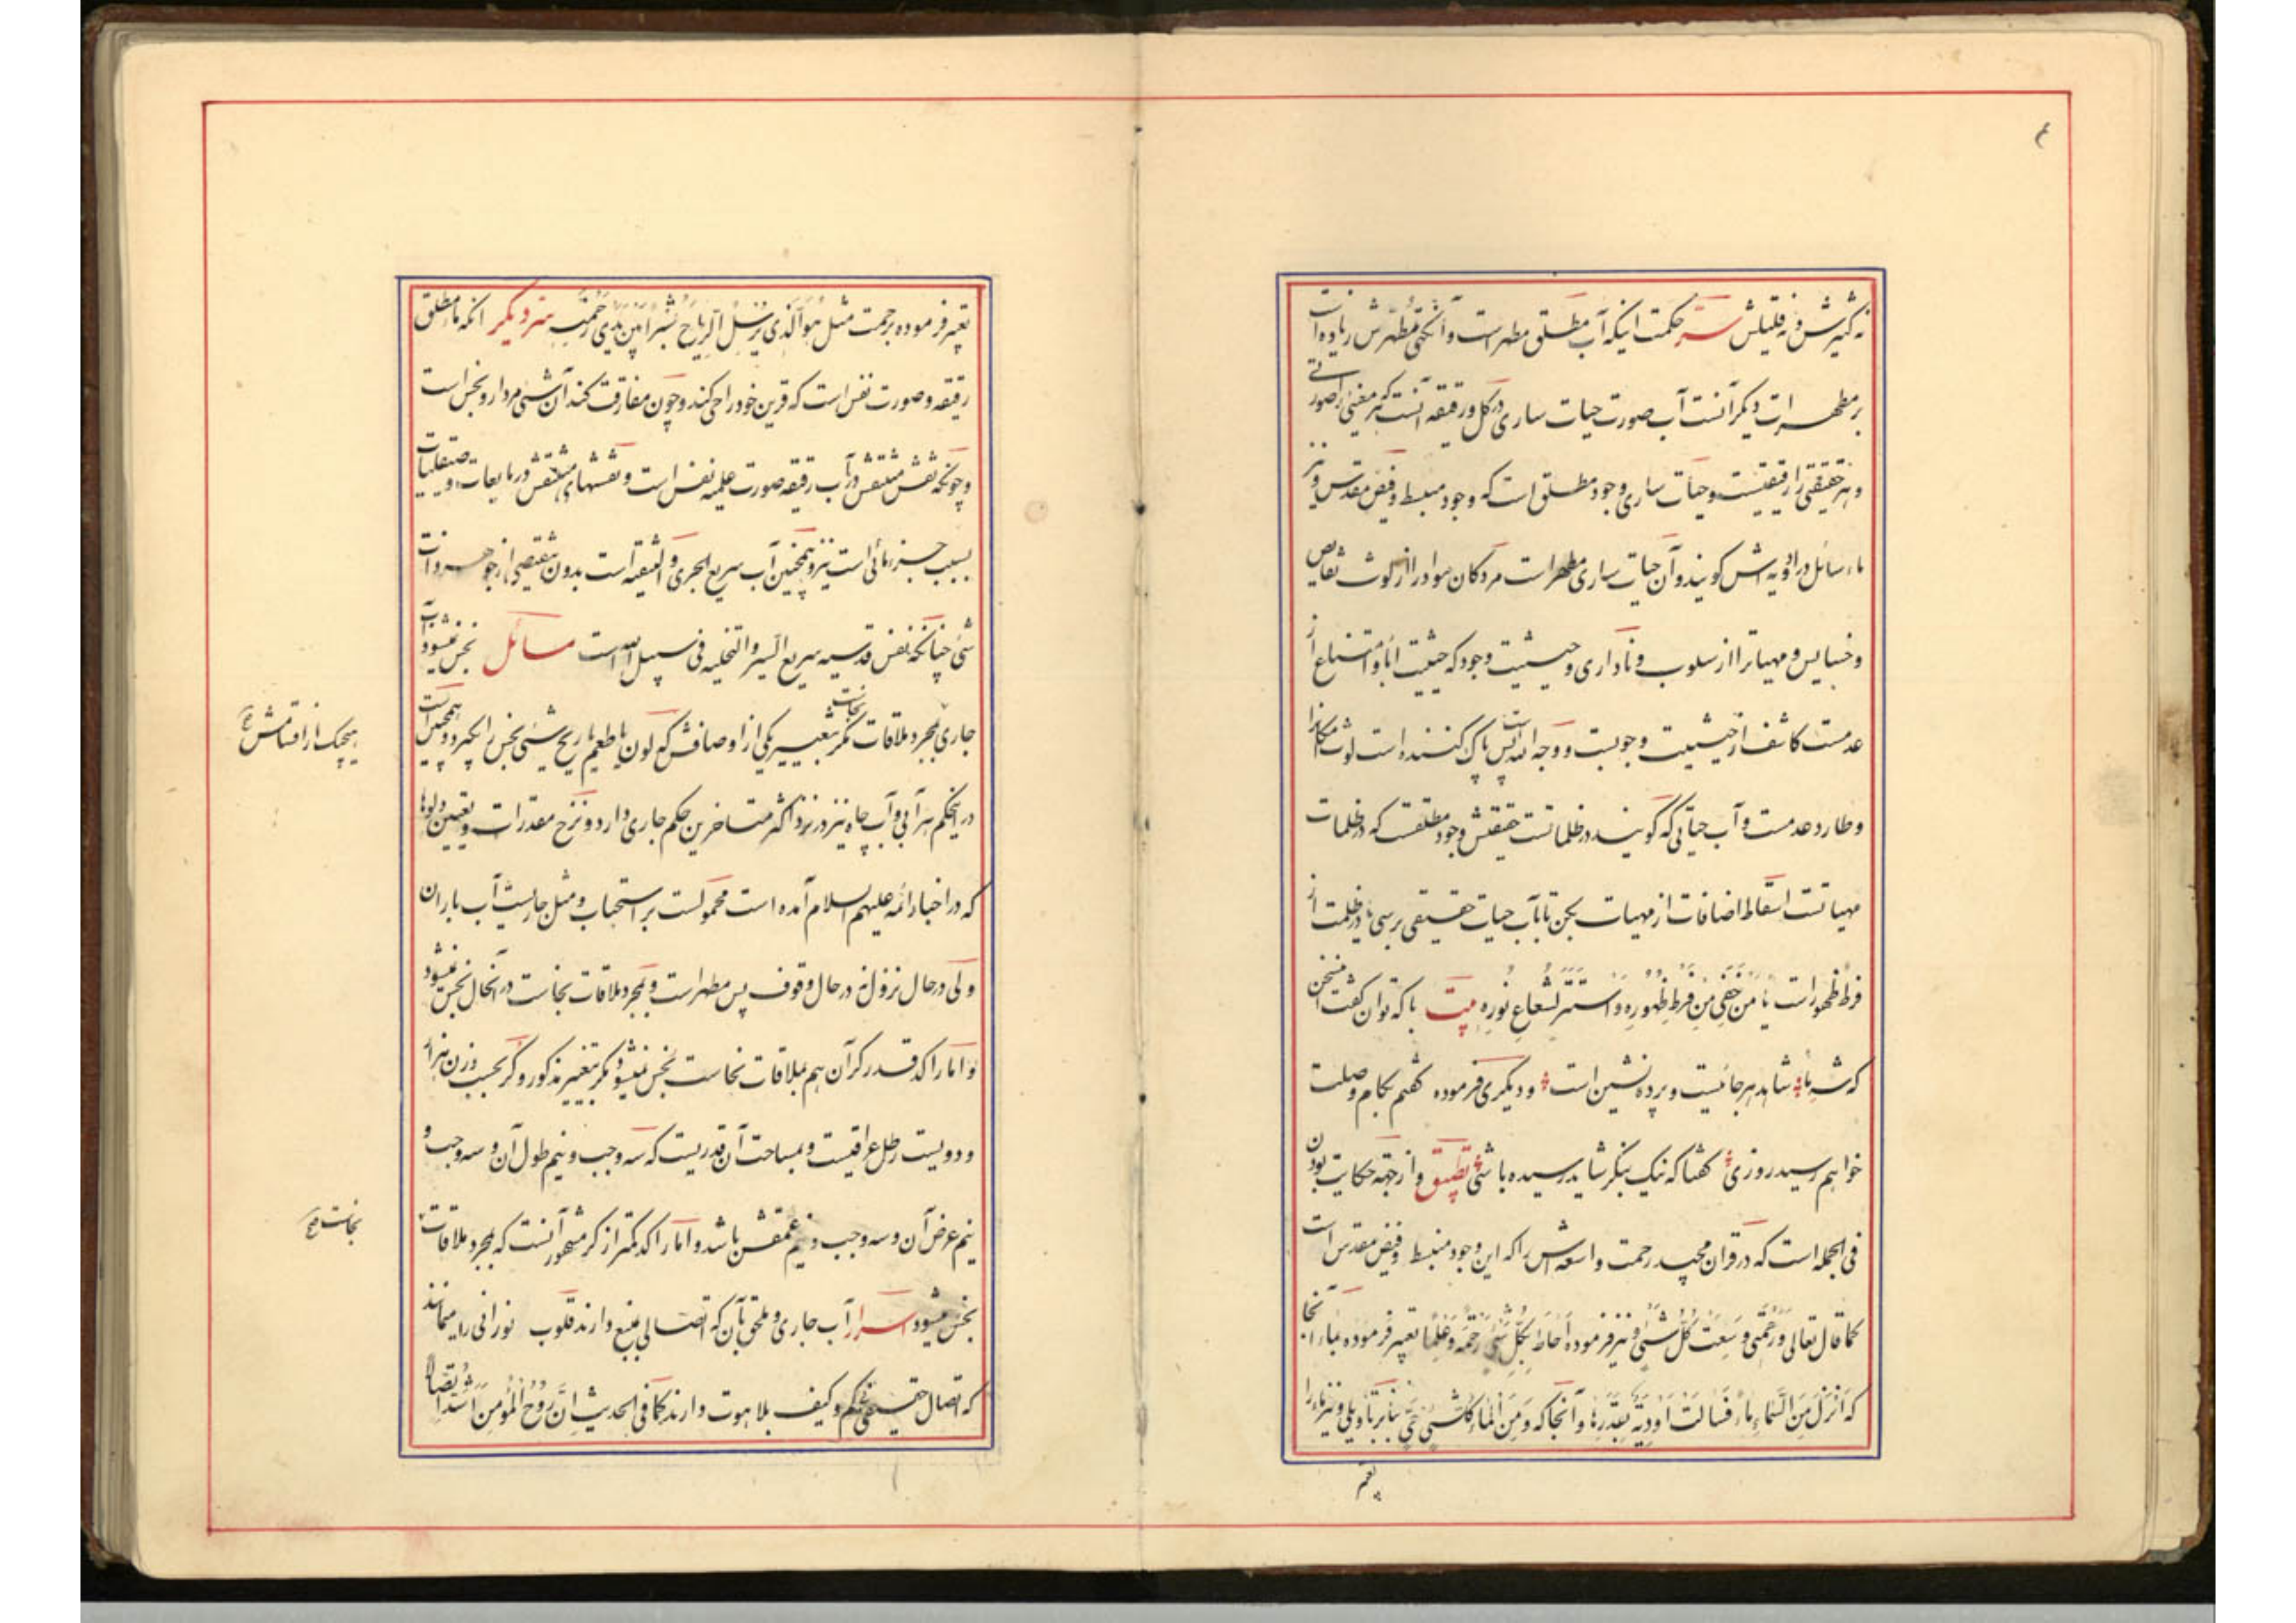 ۴
نه کثیرش و نه قلیلش سرّ حکمت اینکه آب مطلق مطهر است و آنکهی مطهّرش زیاده است
بر مطهرات دیکر آنست آب صورت حیات ساری در کل و رقیقه آنست که هر معنی را صورتی
و هر حقیقتی را رقیقتیست و حیات ساری وجود مطلق است که وجود منبسط و فیض مقدس و نیز
ماء سائل در اودیه اش کویند و آن حیات ساری مطهر است مردکان مواد را از لوث نقایص
و خسایس و مهیات را از سلوب و ناداری و حیثیت وجود که حیثیت اباء و امتناع از
عدمست کاشف از حیثیت وجوبست و وجه الله است پس پاک کننده است لوث امکان را
و طارد عدمست و آب حیاتی که کویند در ظلماتست حقیقتش وجود مطلقست که در ظلمات
مهیاتست اسقاط اضافات از مهیات بکن تا بآب حیات حقیقی برسی یا در ظلمت از
فرط ظهور است یا مَن خَفِیَ مِن فَرطِ ظُهُورِهِ وَ استَتَرَ لِشُعاعِ نُورِهِ بیت با که توان کفت این سخن
که شه ما شاهد هر جائیست و پرده نشین است و دیکری فرموده کفتم بکام وصلت
خواهم رسید روزی کفتا که نیک بنکر شاید رسیده باشی تطبیق و از جهة حکایت بودن
فی الجمله است که در قران مجید رحمت واسعه اش را که این وجود منبسط و فیض مقدس است
کما قال تعالی وَ رَحمَتی وَسِعَت کُلَّ شَیءٍ و نیز فرموده اَحاطَ بِکُلِّ شَیءٍ رَحمَةً وَ عِلمًا تعبیر فرموده بماء آنجا
که اَنزَلَ مِنَ السَّماءِ ماءً فَسالَت اَودِیَةٌ بِقَدَرِها و آنجا که وَ مِنَ الماءِ کُلَّ شَیءٍ حَیٍّ بنابر تاویلی و نیز ماء را
تعبیر
تعبیر فرموده برحمت مثل هُوَ الَّذی یُرسِلُ الرِّیاحَ بُشرًا بَینَ یَدَی رَحمَتِهِ سرّ دیکر آنکه ماء مطلق
رقیقه و صورت نفس است که قرین خود را حی کند و چون مفارقت کند آن شئی مردار و نجس است
و چونکه نقش منتقش در آب رقیقه صورت علمیه نفس است و نقشهای منتقش در مایعات و صیقلیات
بسبب جزء مائی است نیز و همچنین آب سریع الجری و التنقیه است بدون تنقیصی از جوهر و ذات
شئ چنانکه نفس قدسیه سریع السیر و التخلیه فی سبیل الله است مسائل نجس نمیشود آب
جاری بمجرد ملاقات نجاست مکر بتغییر یکی از اوصافش که لون یا طعم یا ریح شیئی نجس را بکیرد و همچنین است
هیچیک از اقسامش صح
در اینحکم هر آبی و آب چاه نیز در نزد اکثر متاخرین حکم جاری دارد و نزح مقدرات و تعیین دلوها
که در اخبار ائمه علیهم السلام آمده است محمولست بر استحباب و مثل جاریست آب باران
ولی در حال نزول نه در حال وقوف پس مطهر است و بمجرد ملاقات نجاست در آنحال نجس نمیشود
و اما راکد قدر کر آن هم بملاقات نجاست نجس نمیشود مکر بتغییر مذکور و کر بحسب وزن هزار
و دویست رطل عراقیست و بمساحت آن قدریست که سه وجب و نیم طول آن و سه وجب و
نیم عرض آن و سه وجب و نیم عمقش باشد و اما راکد کمتر از کر مشهور آنست که بمجرد ملاقات
نجاست صح
نجس میشود اسرار آب جاری و ملحق بآن که اتصالی بمنبع دارند قلوب نورانی را میمانند
که اتصال حقیقی بیکم و کیف بلاهوت دارند کما فی الحدیث اِنَّ رُوحَ المُؤمِنِ اَشَدُّ اتِّصالًا